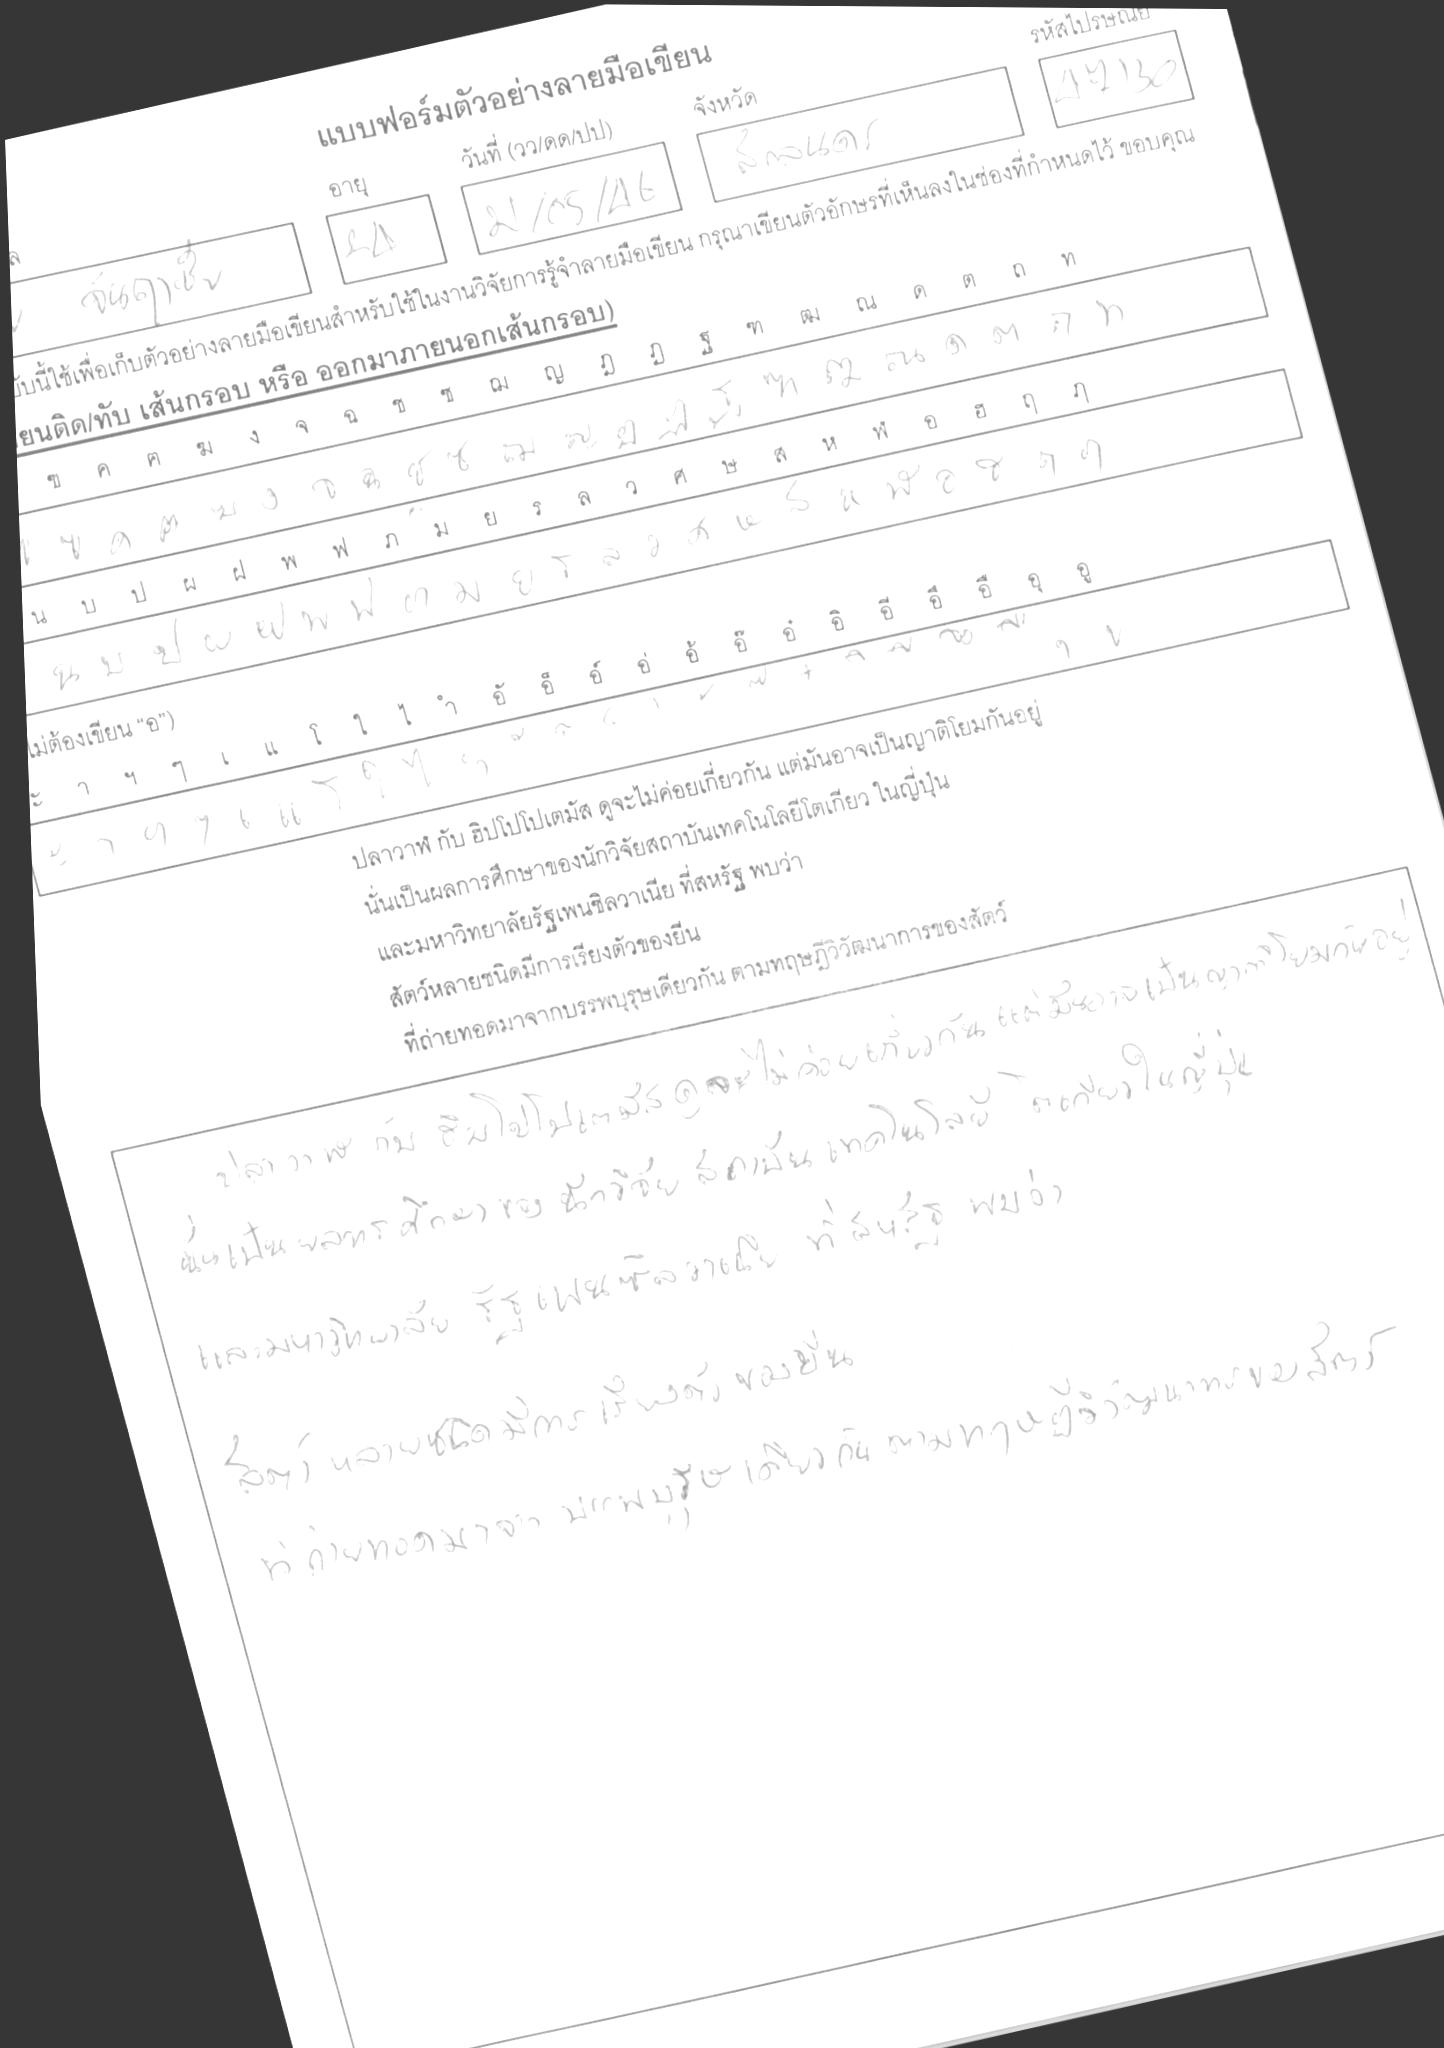 แบบฟอร์มตัวอย่างลายมือเขียน
อายุ วันที่ (วว/ดด/ปป) จังหวัด รหัสไปรษณีย์
สกลนคร 47130
บับนี้ใช้เพื่อเก็บตัวอย่างลายมือเขียนสำหรับใช้ในงานวิจัยการรู้จำลายมือเขียน กรุณาเขียนตัวอักษรที่เห็นลงในช่องที่กำหนดไว้ ขอบคุณ
ยนติด/ทับ เส้นกรอบ หรือ ออกมาภายนอกเส้นกรอบ)
ข ค ฅ ฆ ง จ ฉ ช ซ ฌ ญ ฎ ฏ ฐ ฑ ฒ ณ ด ต ถ ท
ข ค ฅ ฆ ง จ ฉ ช ซ ฌ ญ ฎ ฏ ฐ ฑ ฒ ณ ด ต ถ ท
น บ ป ผ ฝ พ ฟ ภ ม ย ร ล ว ศ ษ ส ห ฬ อ ฮ ฤ ภ
น บ ป ผ ฝ พ ฟ ภ ม ย ร ล ว ศ ษ ส ห ฬ อ ฮ ฤ ภ
ไม่ต้องเขียน "อ")
ะ า ฯ ๆ เ แ โ ใ ไ ำ อั อ็ อ์ อ่ อ้ อ๊ อ๋ อิ อี อึ อื อุ อู
ะ า ฯ ๆ เ แ โ ใ ไ ำ
ปลาวาฬ กับ ฮิปโปโปเตมัส ดูจะไม่ค่อยเกี่ยวกัน แต่มันอาจเป็นญาติโยมกันอยู่
นั่นเป็นผลการศึกษาของนักวิจัยสถาบันเทคโนโลยีโตเกียว ในญี่ปุ่น
และมหาวิทยาลัยรัฐเพนซิลวาเนีย ที่สหรัฐ พบว่า
สัตว์หลายชนิดมีการเรียงตัวของยีน
ที่ถ่ายทอดมาจากบรรพบุรุษเดียวกัน ตามทฤษฎีวิวัฒนาการของสัตว์
ปลาวาฬ กับ ฮิปโปโปเตมัส ดูจะไม่ค่อยเกี่ยวกัน แต่มันอาจเป็นญาติโยมกันอยู่
นั่นเป็นผลการศึกษาของนักวิจัย สถาบันเทคโนโลยี โตเกียวในญี่ปุ่น
และมหาวิทยาลัย รัฐเพนซิลวาเนีย ที่สหรัฐ พบว่า
สัตว์ หลายชนิดมีการ เรียงตัว ของยีน
ที่ถ่ายทอดมาจา บรรพบุรุษ เดียวกัน ตามทฤษฎีวิวัฒนาการของสัตว์